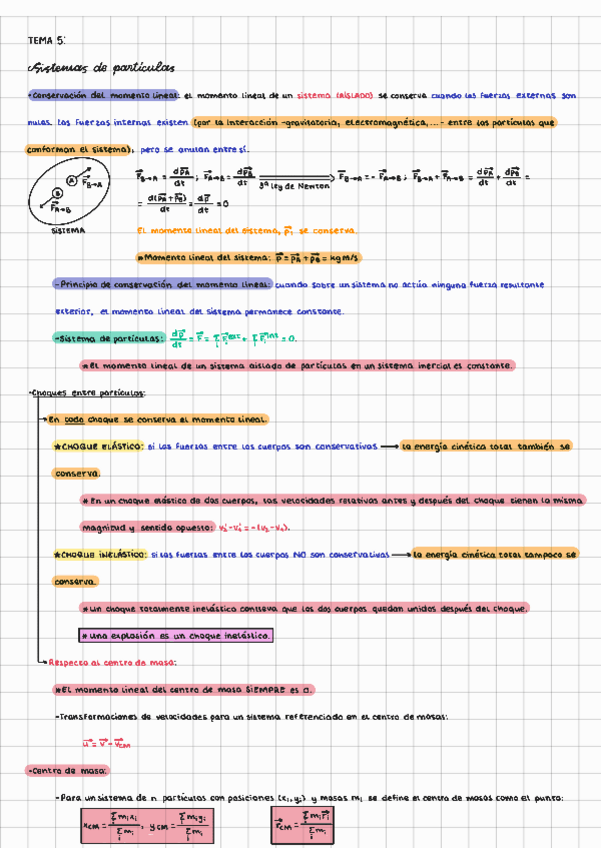 TEMA 5:
Sistemas de partículas
-Conservación del momento lineal: el momento lineal de un sistema (AISLADO) se conserva cuando las fuerzas externas son
nulas. Las fuerzas internas existen (por la interacción -gravitatoria, electromagnética,...- entre las partículas que
conforman el sistema), pero se anulan entre sí.
A F⃗B→A
B F⃗A→B
SISTEMA
F⃗B→A = dp⃗A/dt ; F⃗A→B = dp⃗B/dt ⟹ 3ª Ley de Newton F⃗B→A = - F⃗A→B ; F⃗B→A + F⃗A→B = dp⃗A/dt + dp⃗B/dt =
= d(p⃗A + p⃗B)/dt = dp⃗/dt = 0
El momento lineal del sistema, p⃗, se conserva.
*Momento lineal del sistema: p⃗ = p⃗A + p⃗B = kg m/s
-Principio de conservación del momento lineal: cuando sobre un sistema no actúa ninguna fuerza resultante
exterior, el momento lineal del sistema permanece constante.
-Sistema de partículas: dp⃗/dt = F⃗ = Σi F⃗i ext + Σi F⃗i int = 0.
*El momento lineal de un sistema aislado de partículas en un sistema inercial es constante.
-Choques entre partículas:
→En todo choque se conserva el momento lineal.
*CHOQUE ELÁSTICO: si las fuerzas entre los cuerpos son conservativas → la energía cinética total también se
conserva.
*En un choque elástico de dos cuerpos, las velocidades relativas antes y después del choque tienen la misma
magnitud y sentido opuesto: v₂'-v₁' = -(v₂-v₁).
*CHOQUE INELÁSTICO: si las fuerzas entre los cuerpos NO son conservativas → la energía cinética total tampoco se
conserva.
*Un choque totalmente inelástico conlleva que los dos cuerpos quedan unidos después del choque.
*Una explosión es un choque inelástico.
→Respecto al centro de masa:
*El momento lineal del centro de masa SIEMPRE es 0.
-Transformaciones de velocidades para un sistema referenciado en el centro de masas:
u⃗ = v⃗ - v⃗CM
-Centro de masa:
-Para un sistema de n partículas con posiciones (xi, yi) y masas mi se define el centro de masas como el punto:
xCM = Σi mi xi / Σi mi , yCM = Σi mi yi / Σi mi r⃗CM = Σi mi r⃗i / Σi mi